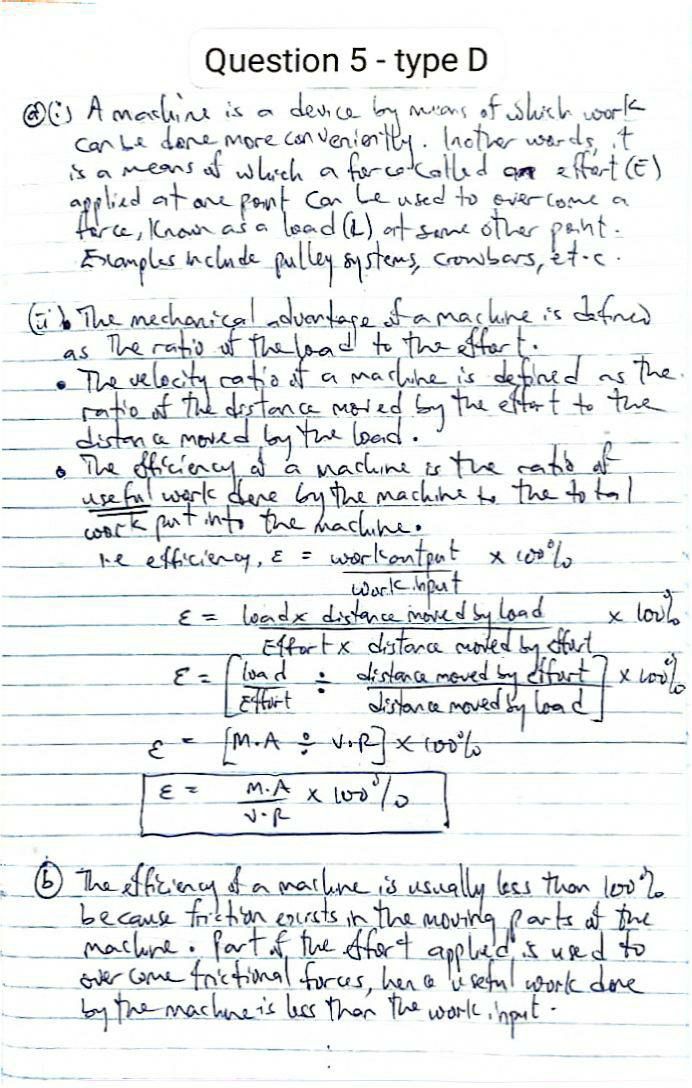 Question 5 - type D
(a)(i) A machine is a device by means of which work
can be done more conveniently. In other words, it
is a means of which a force called an effort (E)
applied at one point can be used to overcome a
force, known as a load (L) at some other point.
Examples include pulley systems, crowbars, e.t.c.
(ii) • The mechanical advantage of a machine is defined
as the ratio of the load to the effort.
• The velocity ratio of a machine is defined as the
ratio of the distance moved by the effort to the
distance moved by the load.
• The efficiency of a machine is the ratio of
useful work done by the machine to the total
work put into the machine.
i.e efficiency, ε = work output / work input × 100%
ε = load × distance moved by load / Effort × distance moved by effort × 100%
ε = [load / Effort ÷ distance moved by effort / distance moved by load] × 100%
ε = [M.A ÷ V.R] × 100%
ε = M.A / V.R × 100%
(b) The efficiency of a machine is usually less than 100%
because friction exists in the moving parts of the
machine. Part of the effort applied is used to
overcome frictional forces, hence useful work done
by the machine is less than the work input.